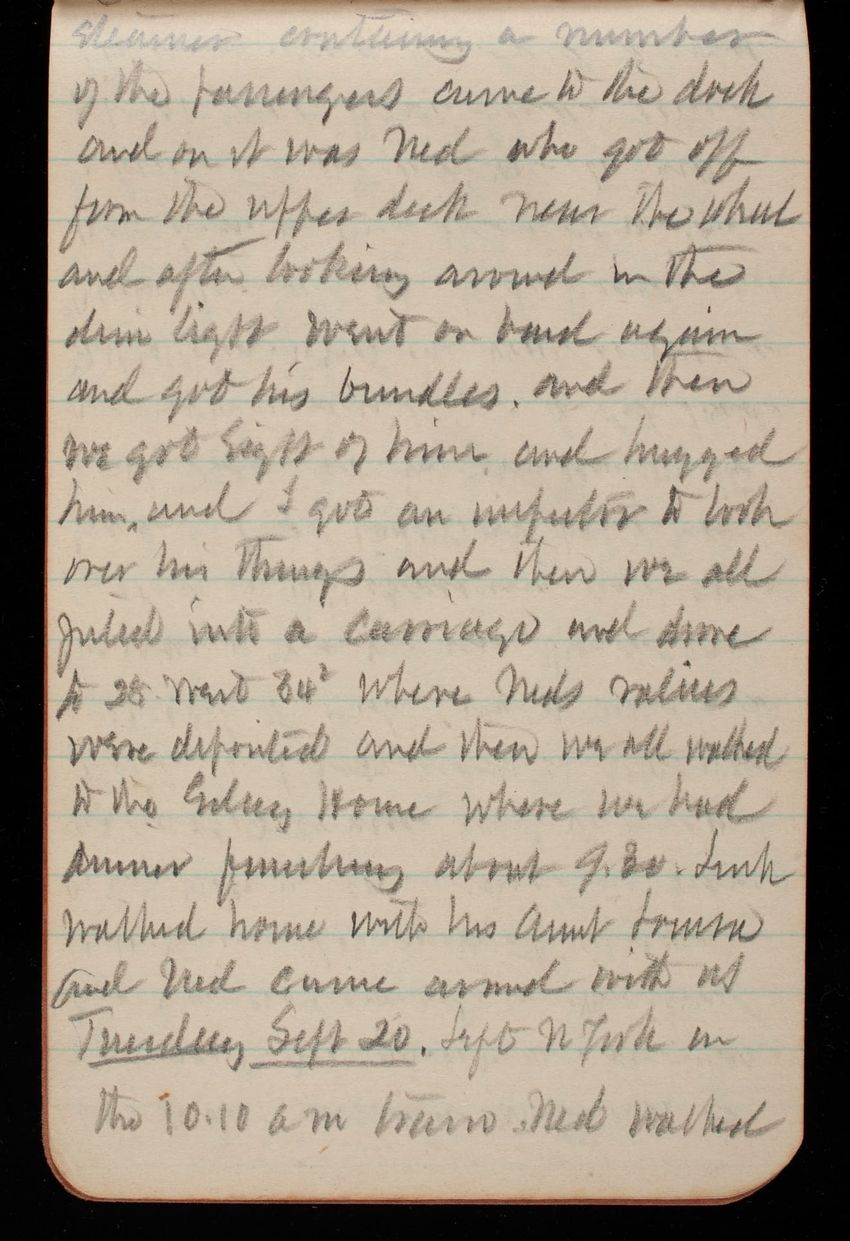 steamer containing a number
of the passengers came to the dock
and on it was Ned who got off
from the upper deck near the wheel
and after looking around in the
dim light went on board again
and got his bundles. and then
we got sight of him and hugged
him, and I got an inspector to look
over his things and then we all
piled into a carriage and drove
to 28 West 34 where Neds valises
were deposited and then we all walked
to the Gilsey House where we had
dinner finishing about 9.30.
walked home with his Aunt Louisa
and Ned came around with us
Tuesday Sept 20. Left N York on
the 10.10 am train. Ned walked